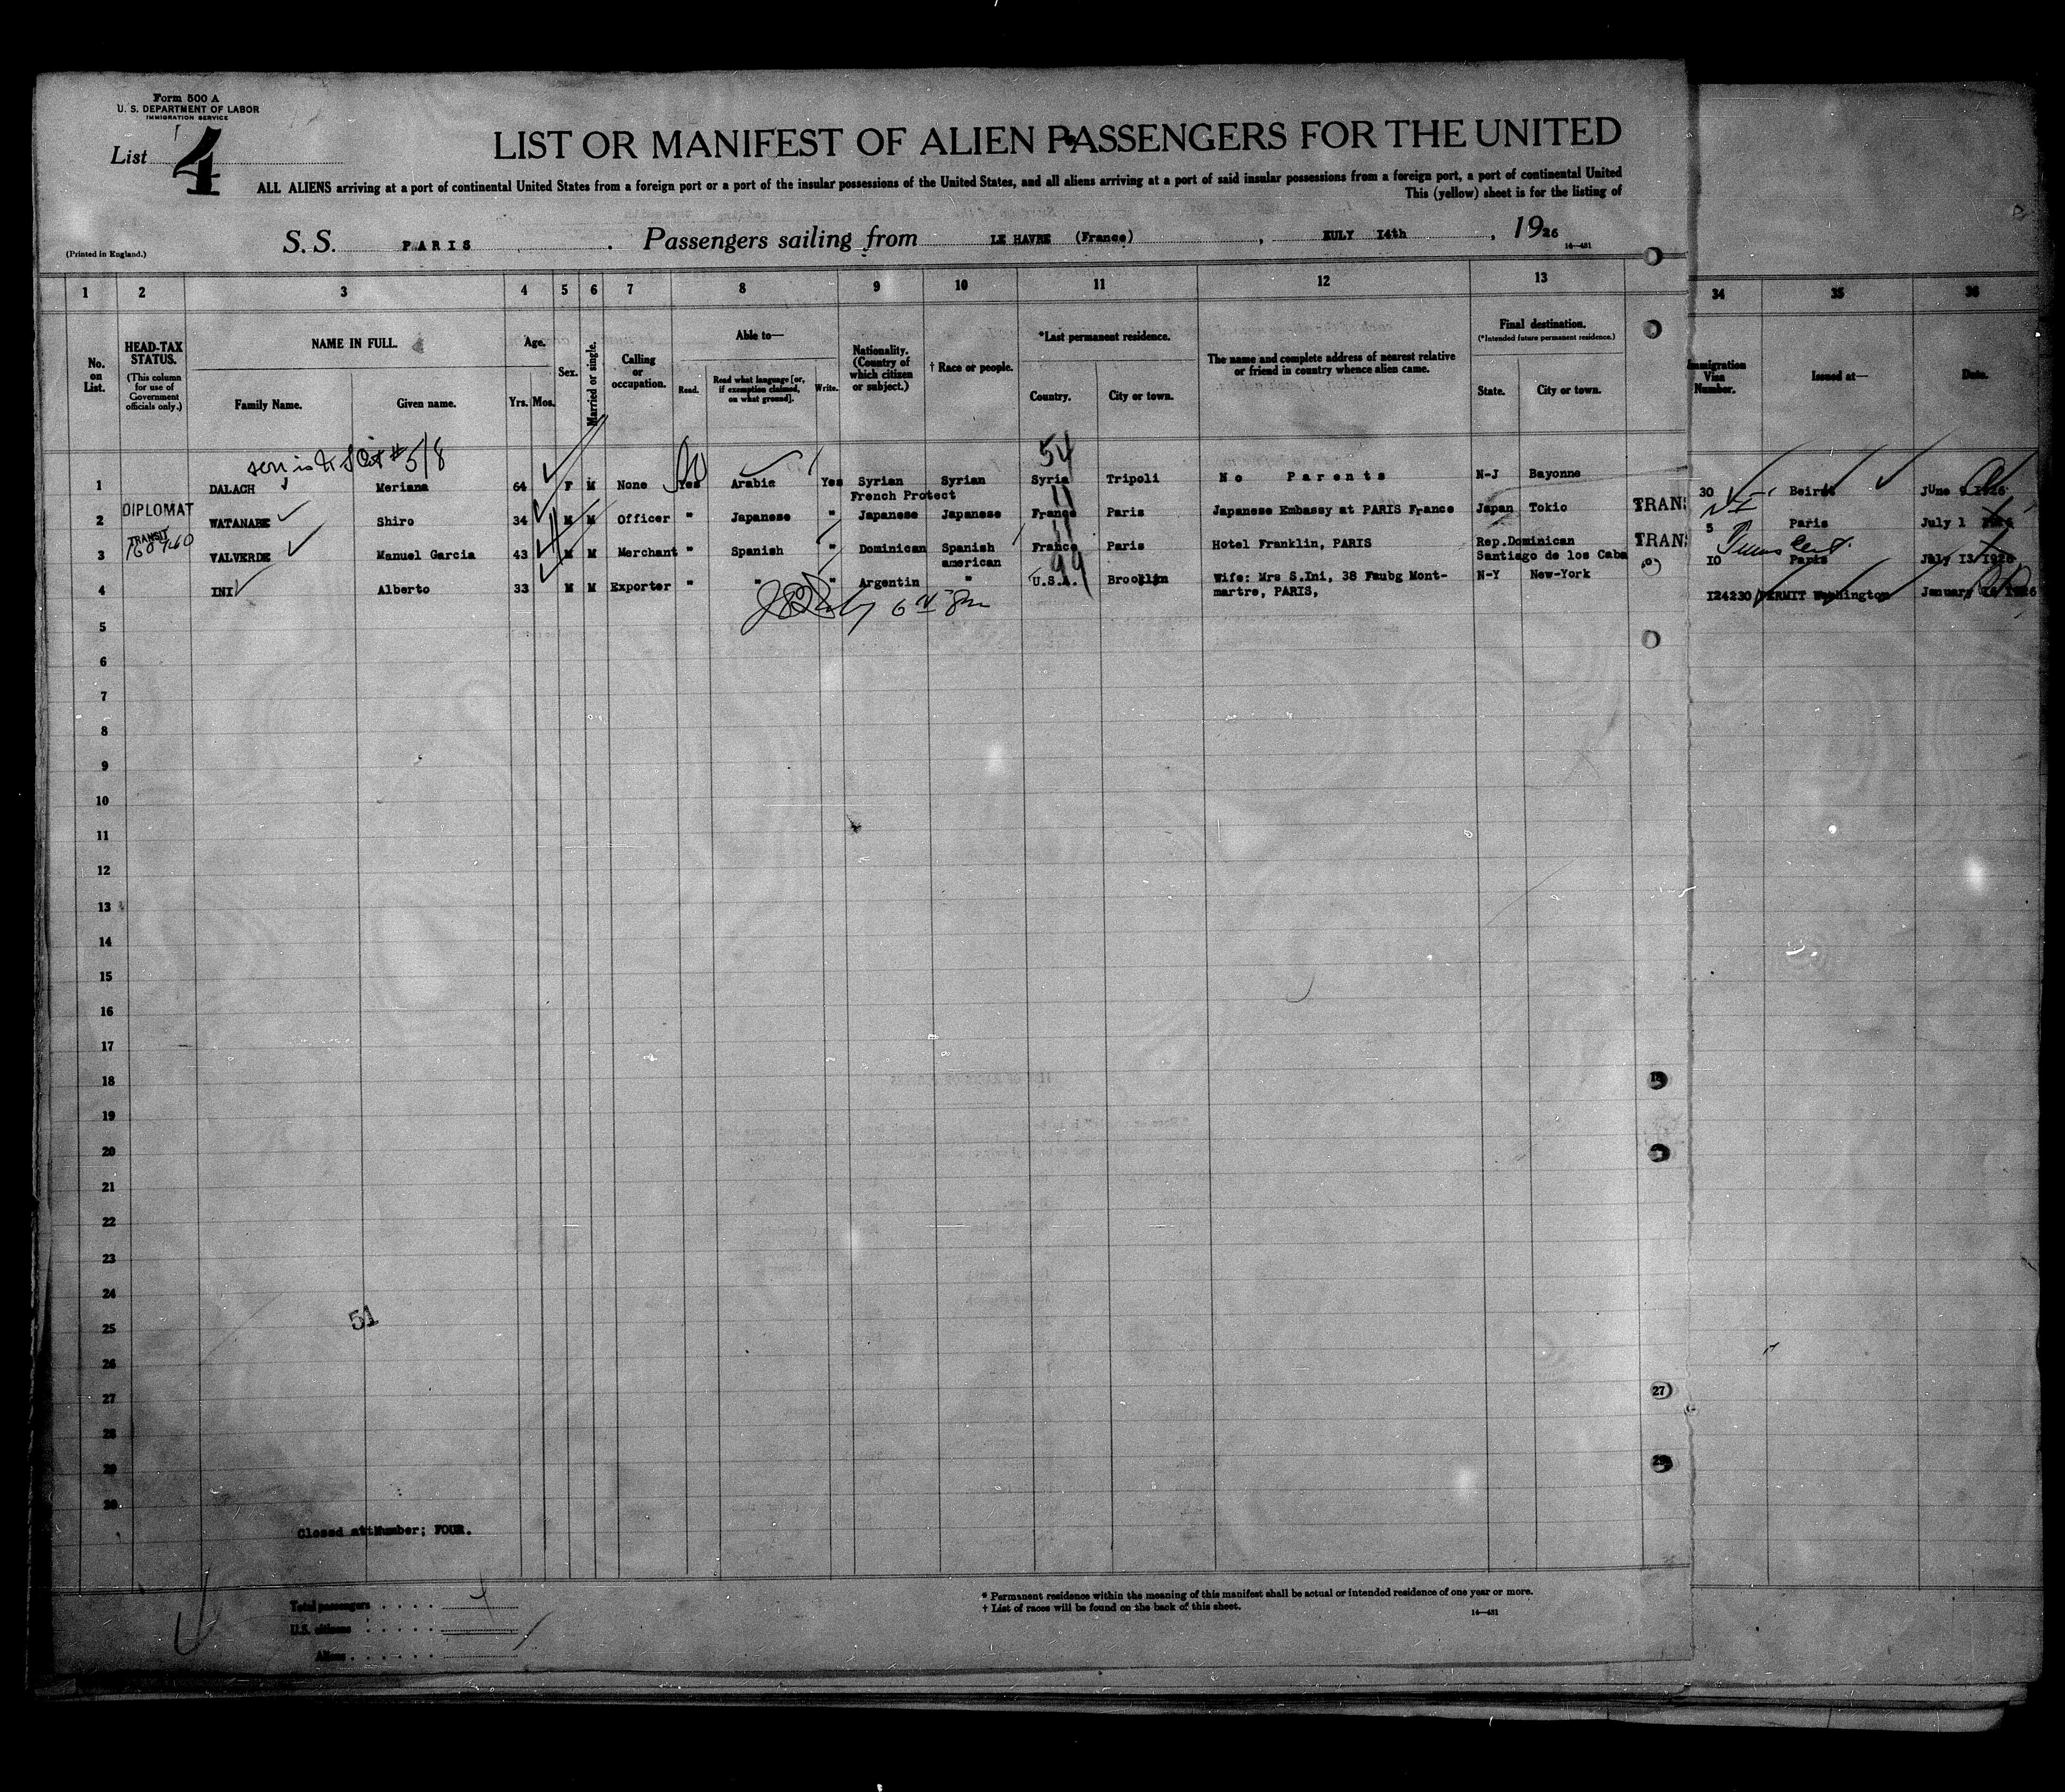 Form 500 A
U. S. DEPARTMENT OF LABOR
IMMIGRATION SERVICE
List 4
LIST OR MANIFEST OF ALIEN PASSENGERS FOR THE UNITED
ALL ALIENS arriving at a port of continental United States from a foreign port or a port of the insular possessions of the United States, and all aliens arriving at a port of said insular possessions from a foreign port, a port of continental United
This (yellow) sheet is for the listing of
(Printed in England.)
S. S. PARIS . Passengers sailing from LE HAVRE (France) , EULY I4th , 1926
14—431
1 2 3 4 5 6 7 8 9 10 11 12 13 34 35 36
No. on List.
HEAD-TAX STATUS.
(This column for use of Government officials only.)
NAME IN FULL.
Family Name. Given name.
Age.
Yrs. Mos.
Sex.
Married or single.
Calling or occupation.
Able to—
Read. Read what language [or, if exemption claimed, on what ground]. Write.
Nationality. (Country of which citizen or subject.)
† Race or people.
*Last permanent residence.
Country. City or town.
The name and complete address of nearest relative or friend in country whence alien came.
Final destination.
(*Intended future permanent residence.)
State. City or town.
Immigration Visa Number.
Issued at—
Date.
son is #518
54
1 DALACH Meriana 64 F M None Yes Arabic Yes Syrian Syrian Syria Tripoli No Parents N-J Bayonne 30 Beirut JUne 9 1926
French Protect
DIPLOMAT
2 WATANABE Shiro 34 M M Officer " Japanese " Japanese Japanese France Paris Japanese Embassy at PARIS France Japan Tokio TRANS 5 Paris July 1
11
TRANSIT
160760
3 VALVERDE Manuel Garcia 43 M M Merchant " Spanish " Dominican Spanish american France Paris Hotel Franklin, PARIS Rep.Dominican Santiago de los Caba TRANS IO Paris July I3 1926
11
99
4 INI Alberto 33 M M Exporter " " " Argentin " U.S.A. Brooklin Wife: Mrs S.Ini, 38 Faubg Mont-martre, PARIS, N-Y New-York I24230 PERMIT Washington January 1926
5
6
7
8
9
10
11
12
13
14
15
16
17
18
19
20
21
22
23
24
51
25
26
27
28
29
30
18
20
27
29
Closed at Number; FOUR.
Total passengers
U.S. citizens
Aliens
* Permanent residence within the meaning of this manifest shall be actual or intended residence of one year or more.
† List of races will be found on the back of this sheet.
14—431